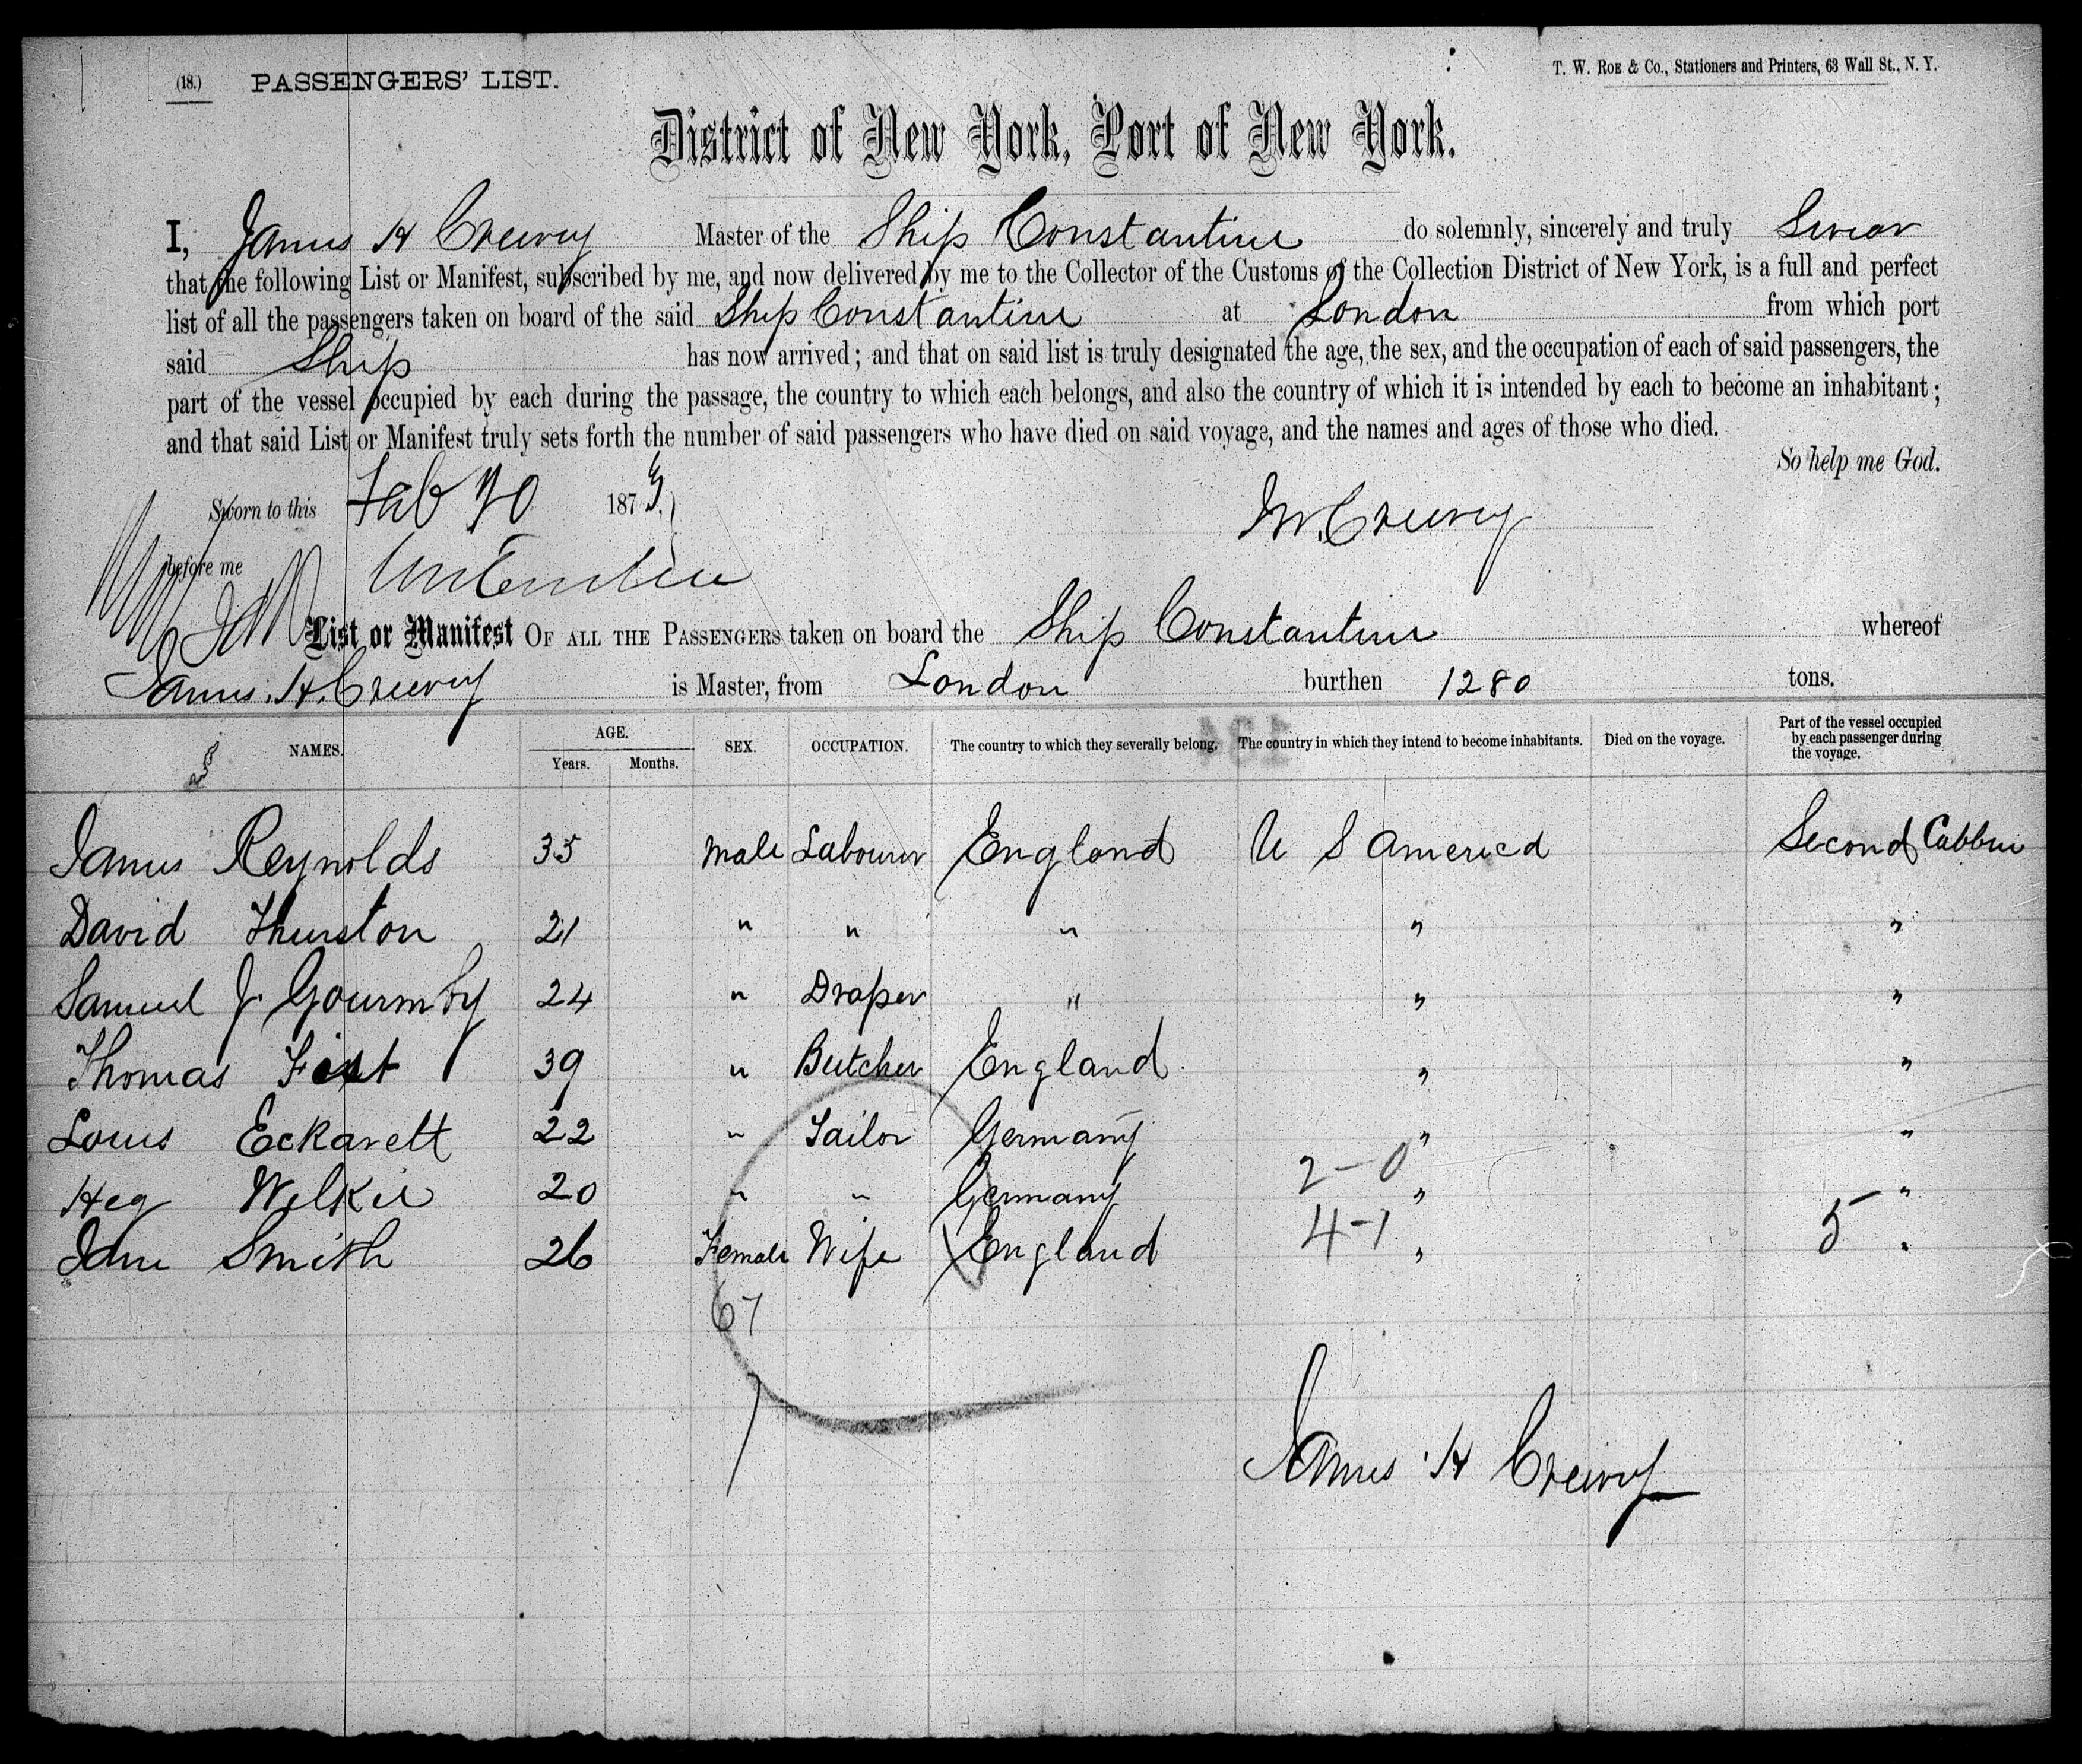 (18.) PASSENGERS' LIST.
T. W. ROE & Co., Stationers and Printers, 63 Wall St., N. Y.
District of New York, Port of New York.
I, James H Creevey Master of the Ship Constantine do solemnly, sincerely and truly Swear
that the following List or Manifest, subscribed by me, and now delivered by me to the Collector of the Customs of the Collection District of New York, is a full and perfect
list of all the passengers taken on board of the said Ship Constantine at London from which port
said Ship has now arrived; and that on said list is truly designated the age, the sex, and the occupation of each of said passengers, the
part of the vessel occupied by each during the passage, the country to which each belongs, and also the country of which it is intended by each to become an inhabitant;
and that said List or Manifest truly sets forth the number of said passengers who have died on said voyage, and the names and ages of those who died.
So help me God.
Sworn to this Feb 187
Creevey
before me
List or Manifest OF ALL THE PASSENGERS taken on board the Ship Constantine whereof
James H. Creevey is Master, from London burthen 1280 tons.
NAMES. AGE. Years. Months. SEX. OCCUPATION. The country to which they severally belong. The country in which they intend to become inhabitants. Died on the voyage. Part of the vessel occupied by each passenger during the voyage.
James Reynolds 35 Male Labourer England U S America Second Cabbin
David Thurston 21 " " " " "
Samuel J. Gourmby 24 " Draper " " "
Thomas 39 " Butcher England " "
Louis Eckarett 22 " Tailor Germany " "
Heg Wilkie 20 " " Germany 2-0 " "
Jane Smith 26 Female Wife England 4-1 " 5 "
67
James H Creevey